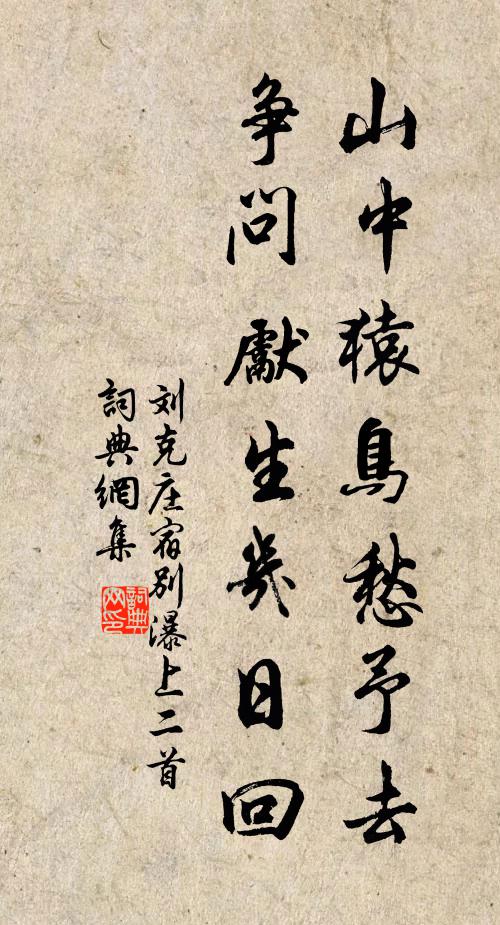 山中猿鳥愁予去
争問獻生幾日回
刘克庄宿别瀑上二首
詞典網集
詞典網印